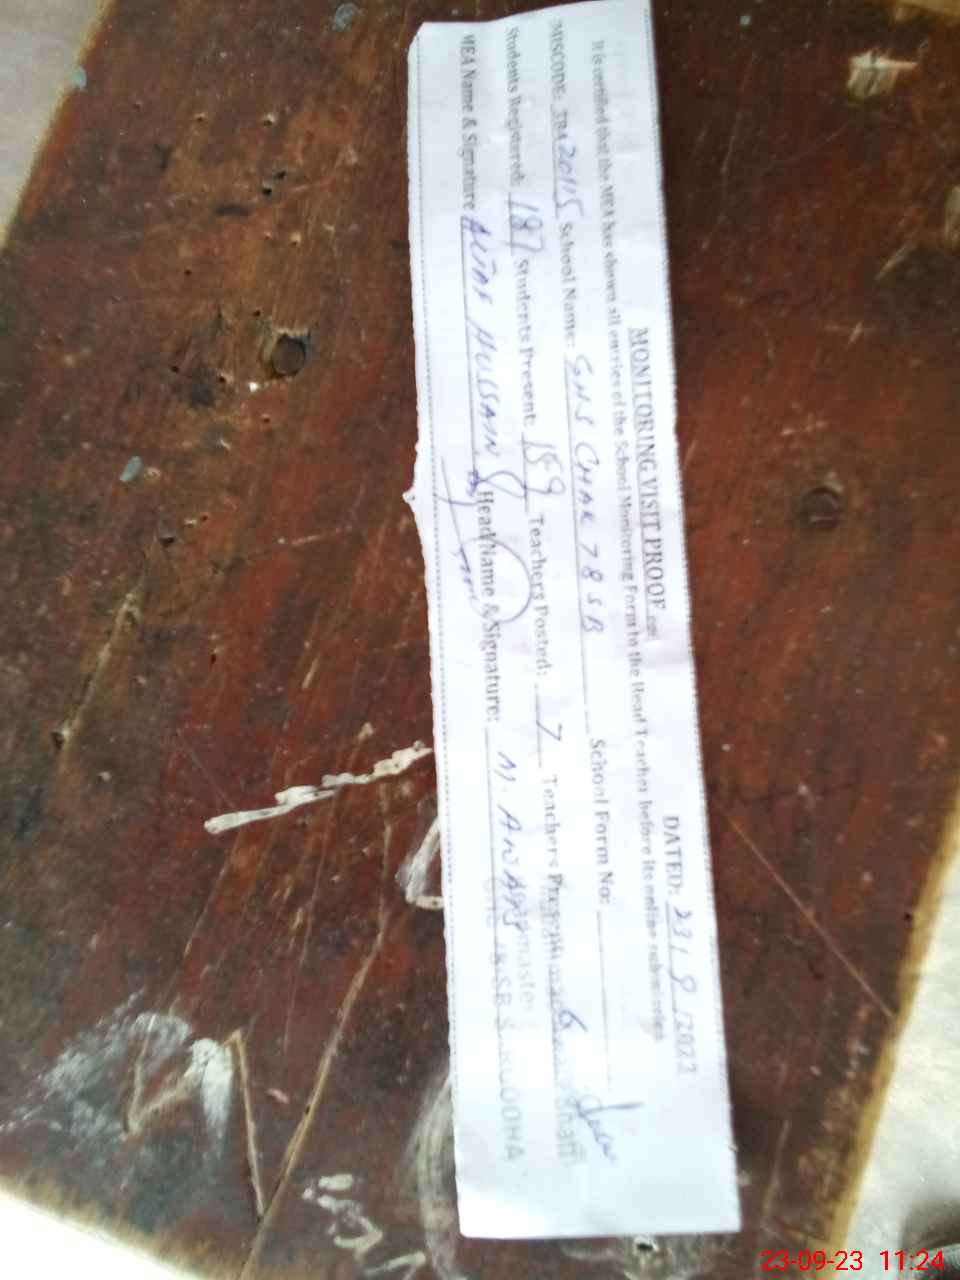 MONITORING VISIT PROOF
DATED: 23/9/2022
It is certified that the MEA has shown all entries of the School Monitoring Form to the Head Teacher before its online submission
EMISCODE: 384 20115 School Name: GHS CHAK 78 SB School Form No:
Students Registered: 187 Students Present: 159 Teachers Posted: 7 Teachers Present: 6
MEA Name & Signature ALTAF HUSSAIN Head Name & Signature: M. ANAAS
SB SARGODHA
23-09-23 11:24